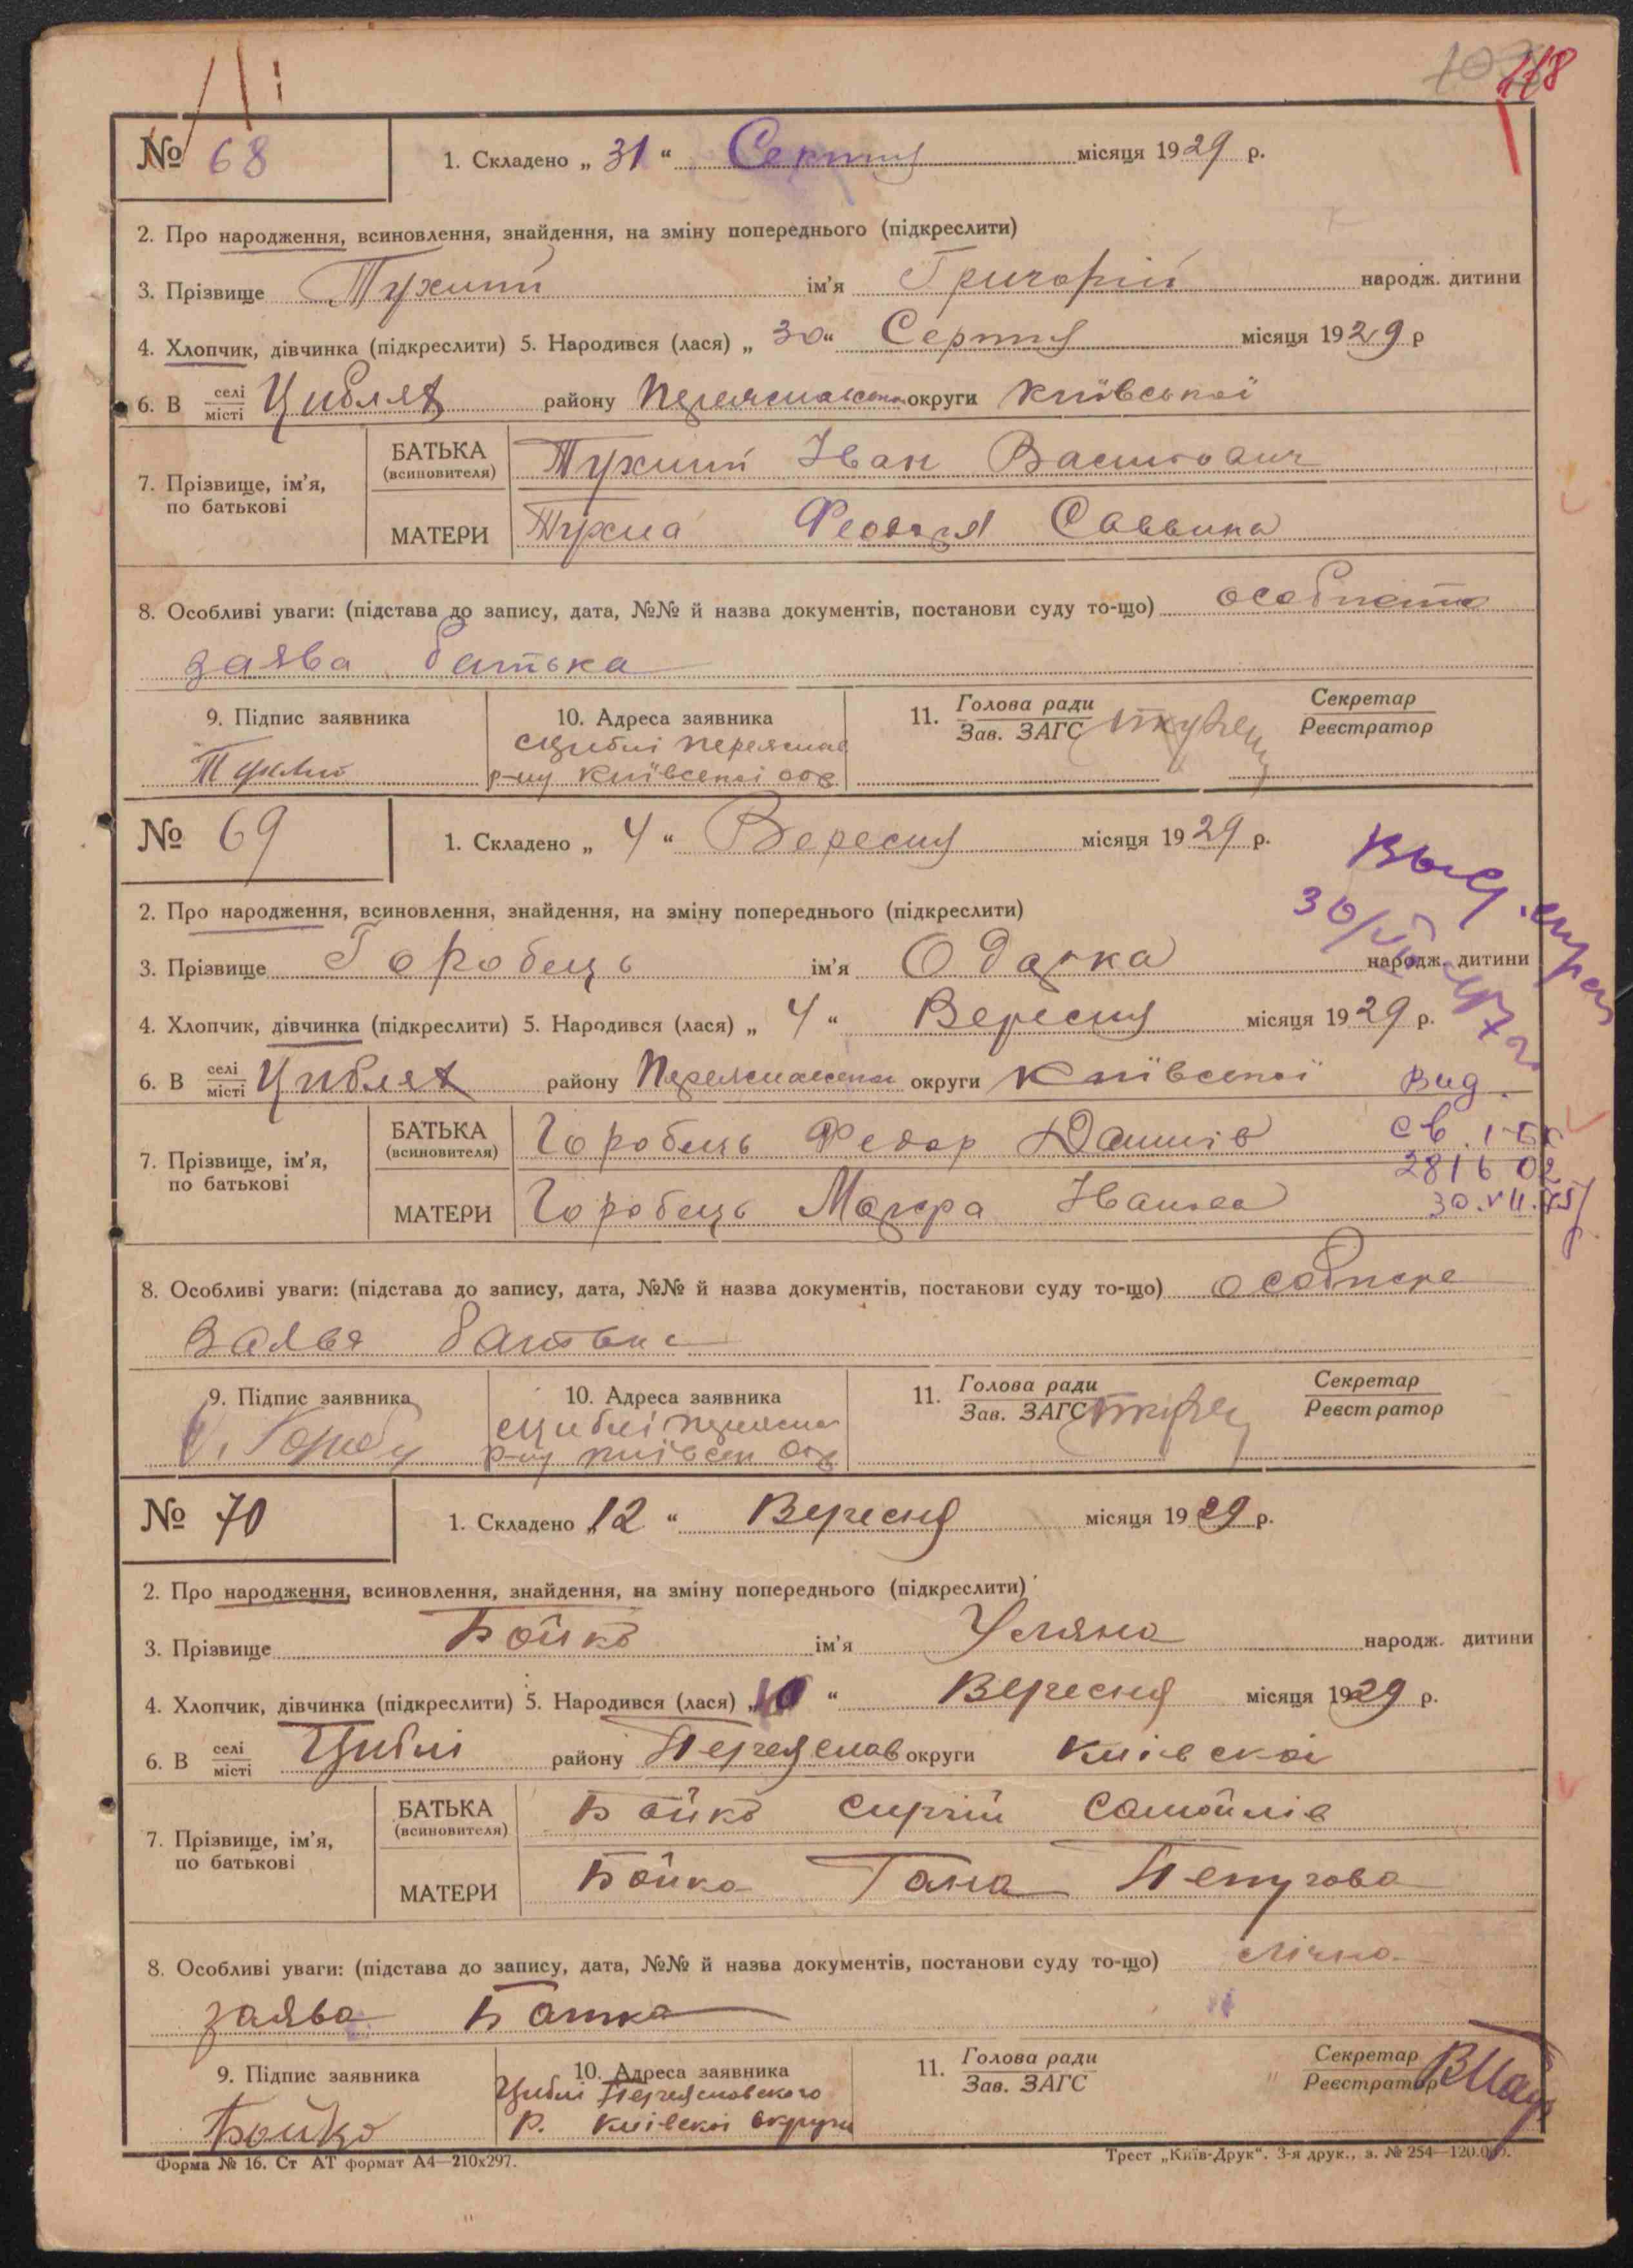 118
№ 68 1. Складено „ 31 “ Серпня місяця 1929 р.
2. Про народження, всиновлення, знайдення, на зміну попереднього (підкреслити)
3. Прізвище Тухлий ім'я Григорій народж. дитини
4. Хлопчик, дівчинка (підкреслити) 5. Народився (лася) „ 30 “ Серпня місяця 1929 р
6. В селі місті Циблях району округи Київської
7. Прізвище, ім'я, по батькові
БАТЬКА (всиновителя) Тухлий Іван Васильович
МАТЕРИ Тухла Саввина
8. Особливі уваги: (підстава до запису, дата, №№ й назва документів, постанови суду то-що)
заява батька
9. Підпис заявника 10. Адреса заявника 11. Голова ради Зав. ЗАГС Секретар Реєстратор
с Циблі Переяслав
Тухлий р-ну Київської
№ 69 1. Складено „ 4 “ Вересня місяця 1929 р.
2. Про народження, всиновлення, знайдення, на зміну попереднього (підкреслити)
3. Прізвище Горобець ім'я Одарка народж. дитини
4. Хлопчик, дівчинка (підкреслити) 5. Народився (лася) „ 4 “ Вересня місяця 1929 р.
6. В селі місті Циблях району округи Київської
Вид.
св. І-БК
2816 02
30.VII.75
7. Прізвище, ім'я, по батькові
БАТЬКА (всиновителя) Горобець Федор Данилів
МАТЕРИ Горобець Мотря Іванова
8. Особливі уваги: (підстава до запису, дата, №№ й назва документів, постакови суду то-що)
заява батька
9. Підпис заявника 10. Адреса заявника 11. Голова ради Зав. ЗАГС Секретар Реєстратор
с Циблі
р-ну
№ 70 1. Складено „ 12 “ Вересня місяця 1929 р.
2. Про народження, всиновлення, знайдення, на зміну попереднього (підкреслити)
3. Прізвище Бойко ім'я Уляна народж. дитини
4. Хлопчик, дівчинка (підкреслити) 5. Народився (лася) „ 10 “ Вересня місяця 1929 р.
6. В селі місті Циблі району Переяслав округи Киівскоі
7. Прізвище, ім'я, по батькові
БАТЬКА (всиновителя) Бойко Сиргій Самойлів
МАТЕРИ Бойко Гана
8. Особливі уваги: (підстава до запису, дата, №№ й назва документів, постанови суду то-що) Лічна
заява Батка
9. Підпис заявника 10. Адреса заявника 11. Голова ради Зав. ЗАГС Секретар Реєстратор
Циблі Переяславского
Бойко р. Киівскоі округи
Форма № 16. Ст АТ формат А4—210х297. Трест „Київ-Друк“. 3-я друк., з. № 254—120.000.